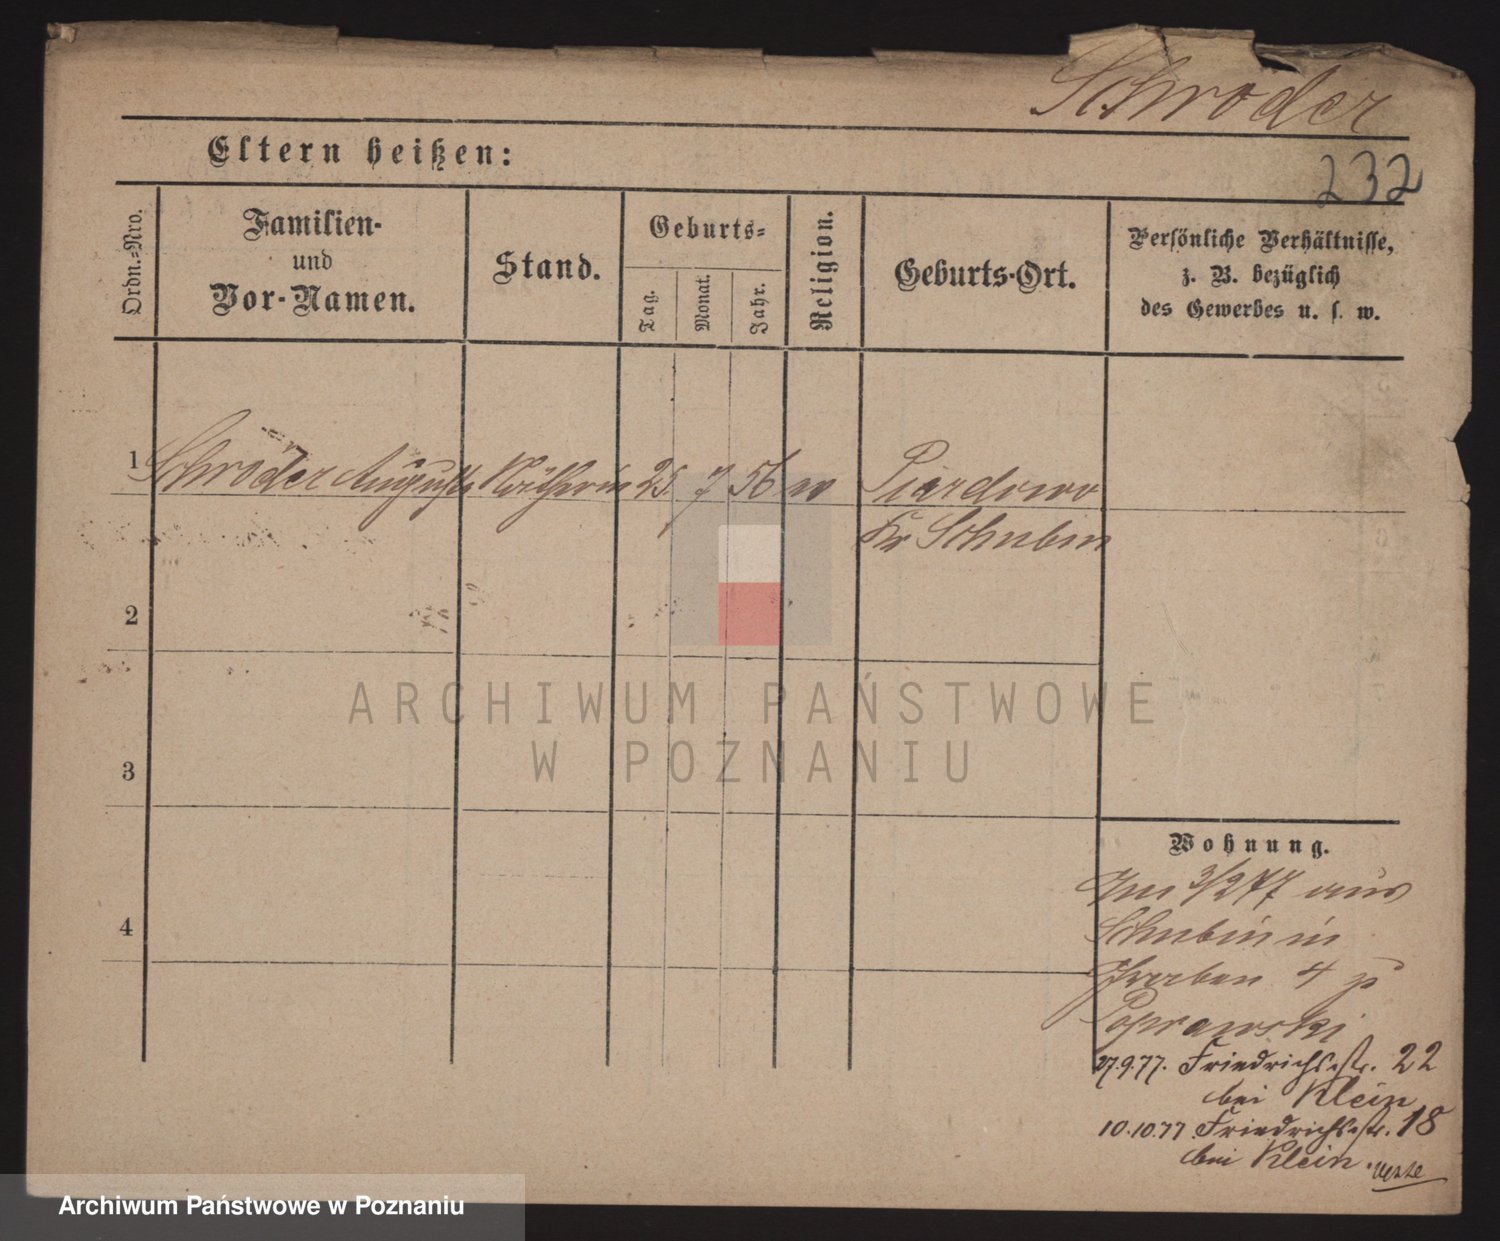 Schroder
Eltern heißen:
232
Ordn.-Nro.
Familien-
und
Vor-Namen.
Stand.
Geburts-
Tag.
Monat.
Jahr.
Religion.
Geburts-Ort.
Persönliche Verhältnisse,
z. B. bezüglich
des Gewerbes u. s. w.
1 Schroder Auguste Näherin 25. 7 56 ev Piardowo
Kr Schubin
2
3
4
Wohnung.
Im 3/2 77 aus
Schubin in
Graben 4 p
Poprawski
27.9.77. Friedrichsstr. 22
bei Klein
10.10.77 Friedrichsstr. 18
bei Klein.
ARCHIWUM PAŃSTWOWE
W POZNANIU
Archiwum Państwowe w Poznaniu